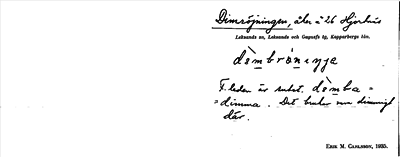 Dimröjningen, åker i 26 Hjortnäs
Leksands sn, Leksands och Gagnefs tg, Kopparbergs län.
F. leden är subst. dòmba =
= dimma. Det brukar vara dimmigt
där.
Erik M. Carlsson, 1935.